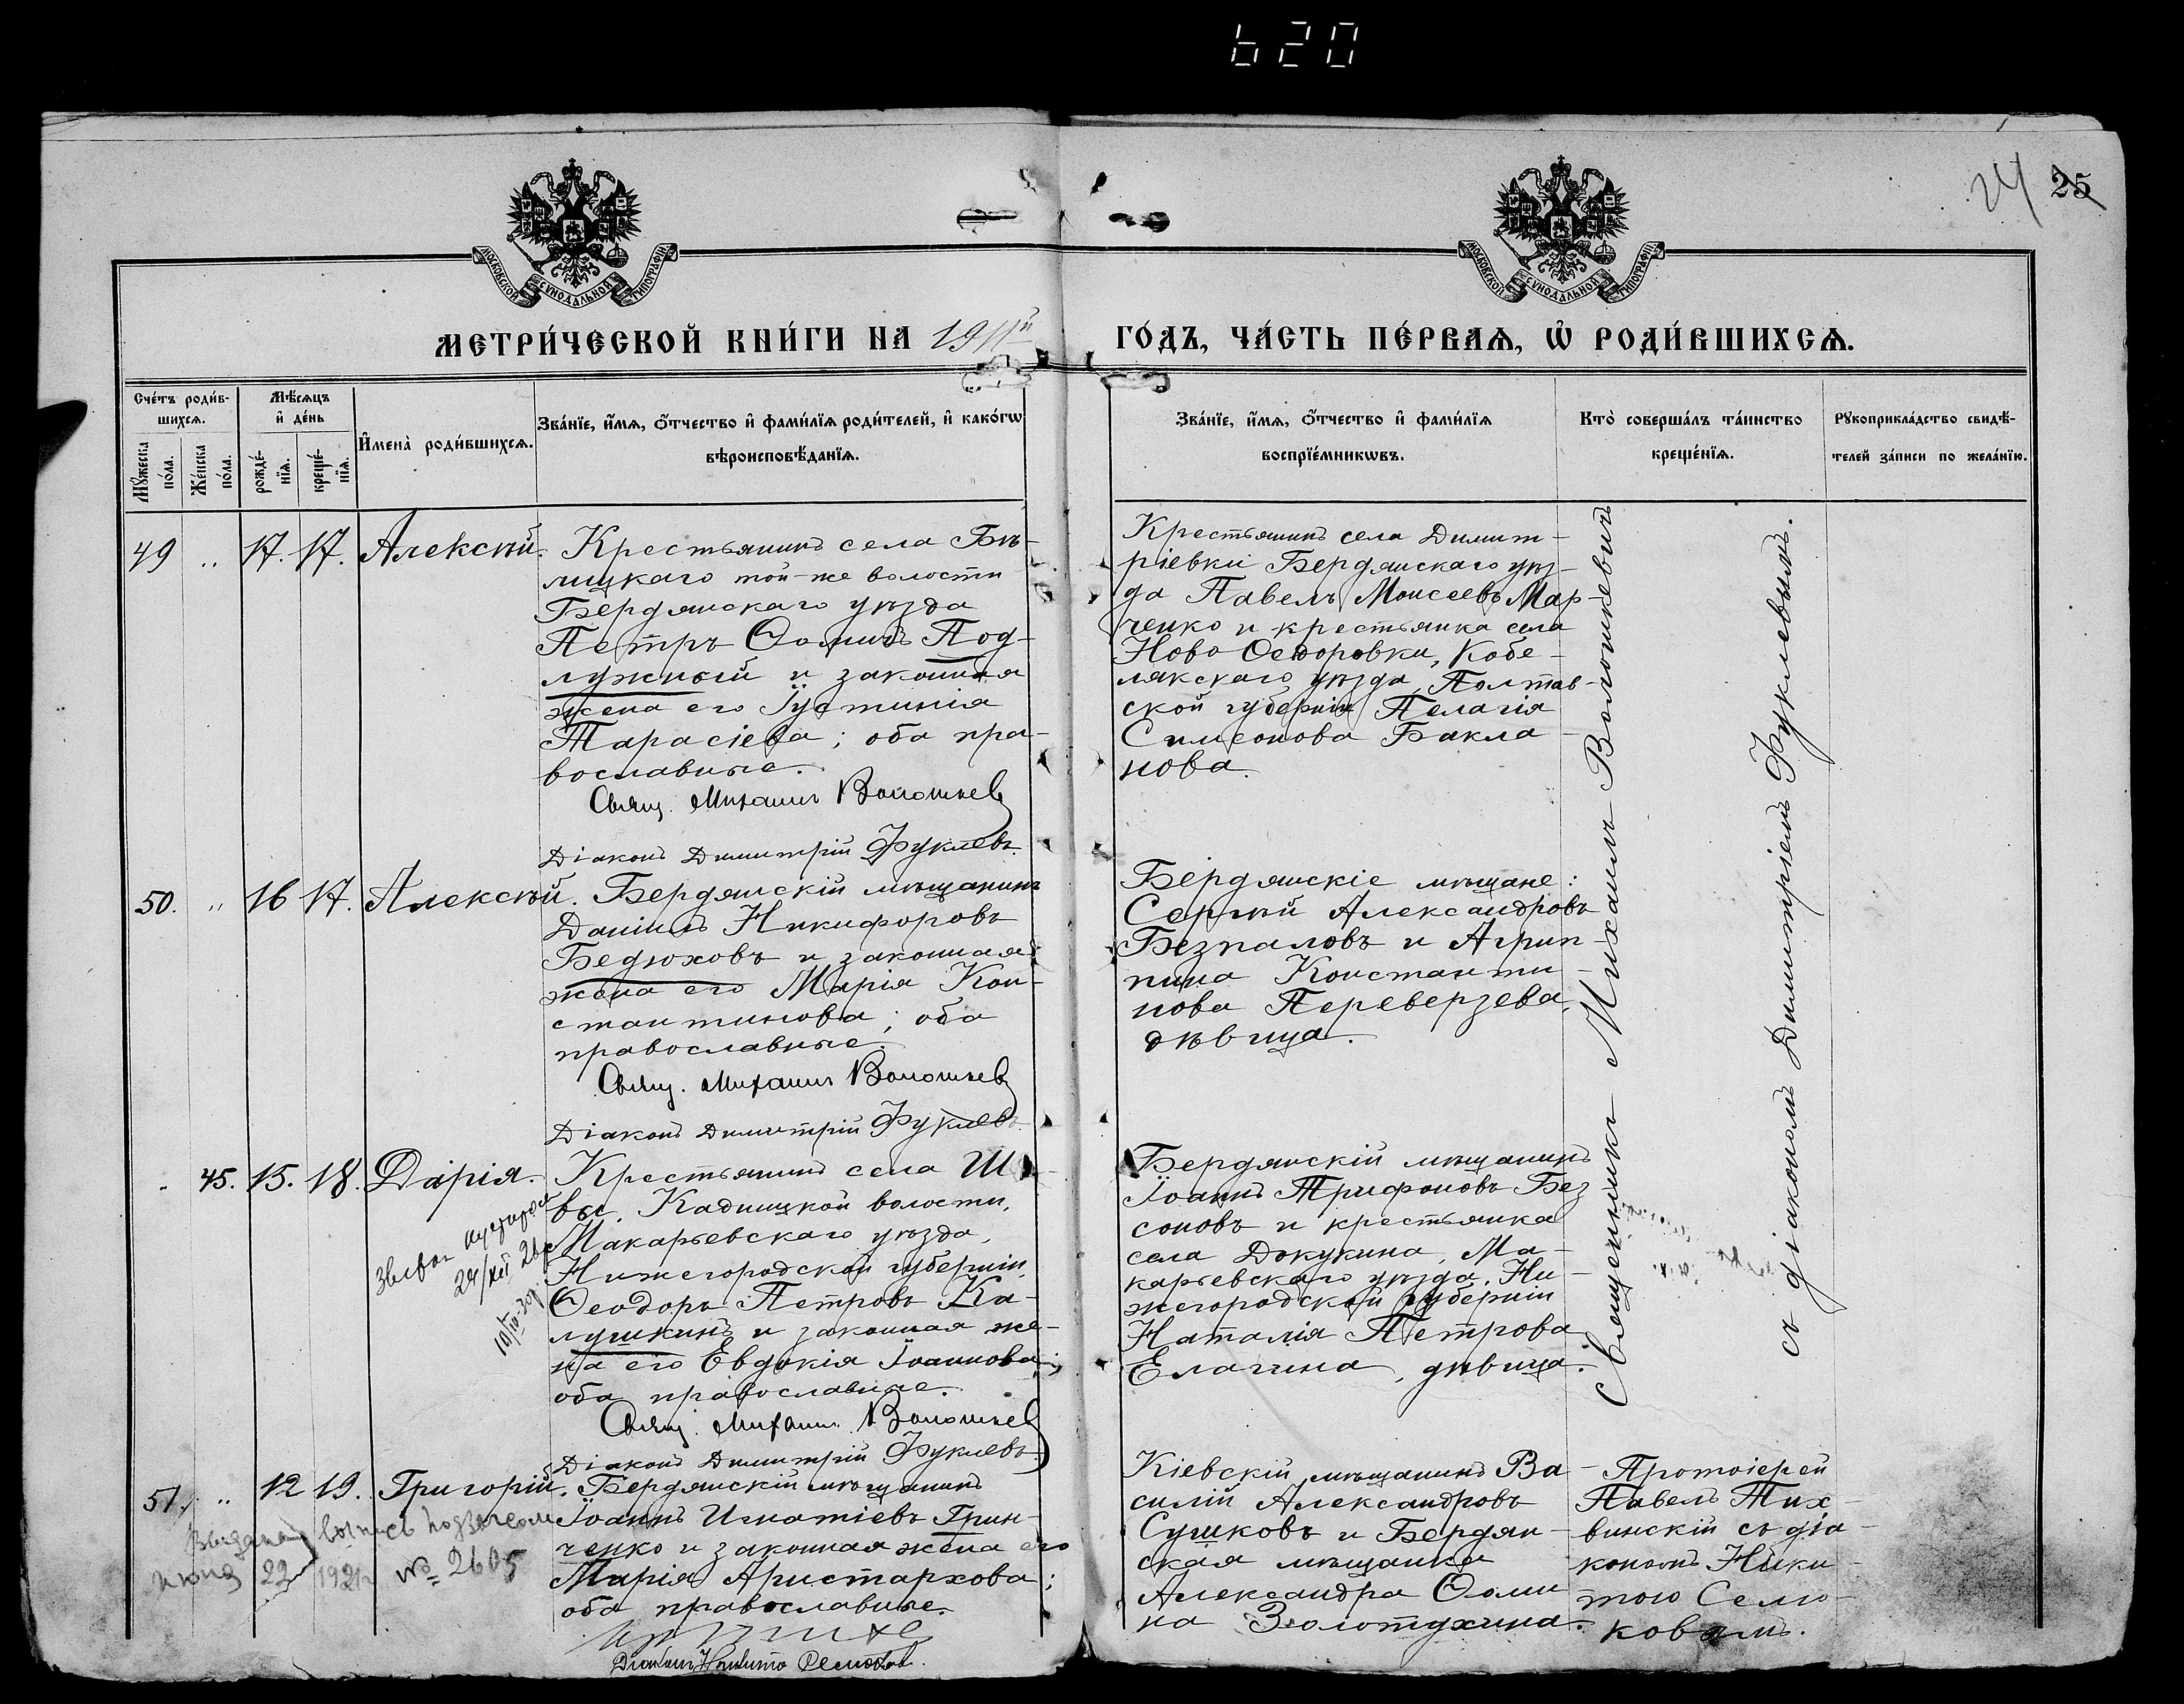 620
24 25
МОСКОВСКОЙ СѴНОДАЛЬНОЙ ТИПОГРАФІИ
МОСКОВСКОЙ СѴНОДАЛЬНОЙ ТИПОГРАФІИ
МЕТРИ́ЧЕСКОЙ КНИ́ГИ НА 1911й ГО́ДЪ, ЧА́СТЬ ПЕ́РВАѦ, Ѽ РОДИ́ВШИХСѦ.
Сче́тъ роди́в-
шихсѧ.
Мꙋ́жеска по́ла.
Же́нска по́ла.
Мѣ́сѧцъ
и҆ де́нь
рожде́-
нїѧ.
креще́-
нїѧ.
И҆мена̀ роди́вшихсѧ.
Зва́нїе, и҆́мѧ, ѻ҆́тчество и҆ фами́лїѧ роди́телей, и҆ како́гѡ
вѣроисповѣ́данїѧ.
Зва́нїе, и҆́мѧ, ѻ҆́тчество и҆ фами́лїѧ
воспрїе́мникѡвъ.
Кто̀ соверша́лъ та́инство
креще́нїѧ.
Рꙋкоприкла́дство свидѣ́-
телей за́писи по жела́нїю.
49 " 17. 17. Алексѣй.
Крестьянинъ села Бѣ-
лицкаго той-же волости
Бердянскаго уѣзда
Петръ Ѳоминъ Под-
лужный и законная
жена его Іустинія
Тарасіева; оба пра-
вославные.
Свящ. Михаилъ Волошкев
Діаконъ Димитрій Фуклевъ.
Крестьянинъ села Димит-
ріевки Бердянскаго уѣз-
да Павелъ Моисеевъ Мар-
ченко и крестьянка села
Ново Ѳедоровки, Кобе-
лякскаго уѣзда, Полтав-
ской губерніи Пелагія
Симеонова Бакла-
нова.
50. " 16 17. Алексѣй.
Бердянскій мѣщанинъ
Даніилъ Никифоровъ
Бедюховъ и законная
жена его Марія Кон-
стантинова; оба
православные.
Свящ. Михаилъ Волошкев
Діаконъ Димитрій Фуклевъ.
Бердянскіе мѣщане:
Сергѣй Александровъ
Безпаловъ и Агрип-
пина Константи-
нова Переверзева,
дѣвица.
45. 15. 18. Дарія.
Крестьянинъ села
вы, Кадницкой волости,
Макарьевскаго уѣзда,
Нижегородской губерніи,
Ѳеодоръ Петровъ Ка-
лушкинъ и законная же-
на его Евдокія Іоаннова;
оба православные.
Свящ. Михаилъ Волошкев
Діаконъ Димитрій Фуклевъ.
Бердянскій мѣщанинъ
Іоаннъ Трифоновъ Без
соновъ и крестьянка
села Докукина, Ма-
карьевскаго уѣзда, Ни-
жегородской губерніи
Наталія Петрова
Елагина, дѣвица.
Священникъ Михаилъ Волошкевичъ
съ діакономъ Димитріемъ Фуклевымъ.
51. " 12 19. Григорій.
Выдана выпись
июня 22 1921 № 2605
Бердянскій мѣщанинъ
Іоаннъ Игнатіевъ Грин-
ченко и законная жена его
Марія Аристархова;
оба православные.
Діаконъ Никита Селюковъ.
Кіевскій мѣщанинъ Ва-
силій Александровъ
Сушковъ и Бердян-
ская мѣщанка
Александра Ѳоми-
на Золотухина.
Протоіерей
Павелъ Тих-
винскій съ діа-
кономъ Ники-
тою Селю-
ковымъ.